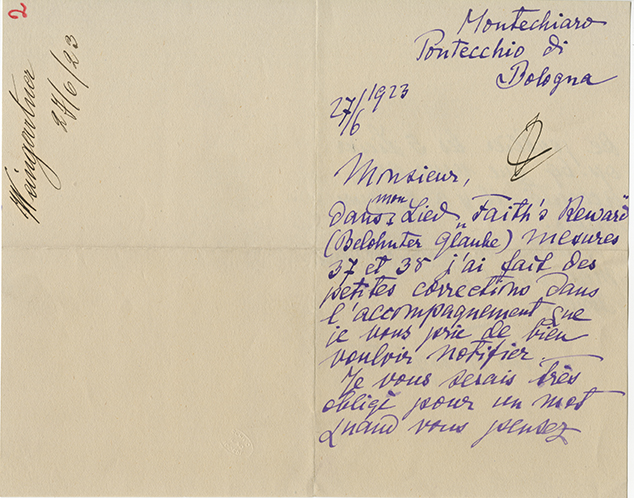 2
Waingartner
27/6/23
Montechiaro
Pontecchio di
Bologna
27/6 1923
Monsieur,
Dans mon Lied „Faith's Reward"
(Belohnter Glaube) mesures
37 et 38 j'ai fait des
petites corrections dans
l'accompagnement que
je vous prie de bien
vouloir notifier.
Je vous serais très
obligé pour un mot
quand vous pensez